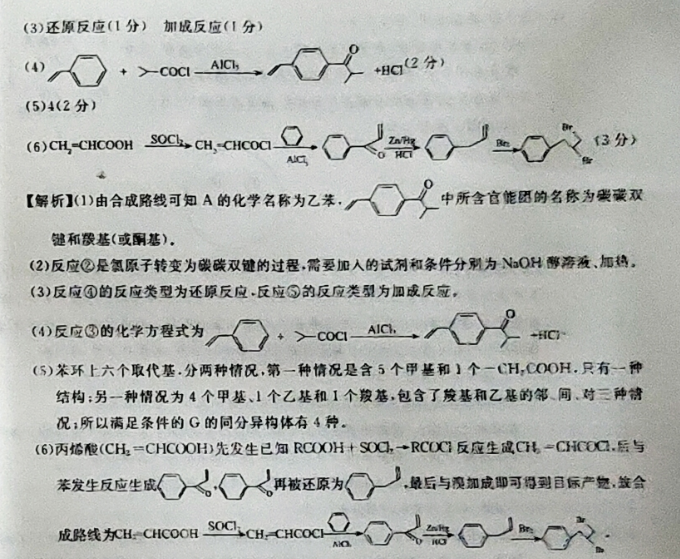 (3)还原反应(1分) 加成反应(1分)
(4) + COCl AlCl₃ O +HCl(2分)
(5)4(2分)
(6)CH₂=CHCOOH SOCl₂ CH₂=CHCOCl AlCl₃ O Zn/Hg HCl Br₂ Br Br (3分)
【解析】(1)由合成路线可知A的化学名称为乙苯, O 中所含官能团的名称为碳碳双
键和羰基(或酮基)。
(2)反应②是氯原子转变为碳碳双键的过程,需要加入的试剂和条件分别为NaOH醇溶液、加热。
(3)反应④的反应类型为还原反应,反应⑤的反应类型为加成反应。
(4)反应③的化学方程式为 + COCl AlCl₃ O +HCl
(5)苯环上六个取代基,分两种情况,第一种情况是含5个甲基和1个—CH₂COOH,只有一种
结构;另一种情况为4个甲基、1个乙基和1个羧基,包含了羧基和乙基的邻、间、对三种情
况;所以满足条件的G的同分异构体有4种。
(6)丙烯酸(CH₂=CHCOOH)先发生已知RCOOH+SOCl₂→RCOCl反应生成CH₂=CHCOCl,后与
苯发生反应生成 O , O 再被还原为 ,最后与溴加成即可得到目标产物,故合
成路线为CH₂=CHCOOH SOCl₂ CH₂=CHCOCl AlCl₃ O Zn/Hg HCl Br₂ Br Br 。